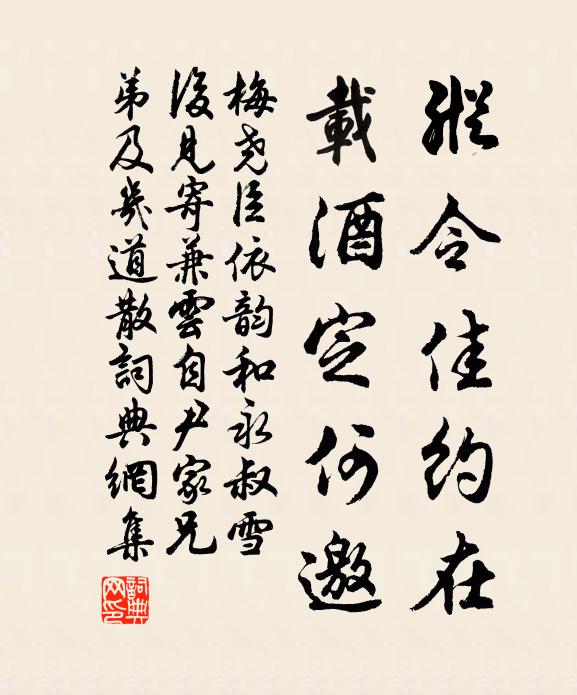 縱令佳約在
載酒定何邀
梅堯臣依韵和永叔雪
後見寄兼雲自尹家兄
弟及幾道散詞典網集
詞典网印